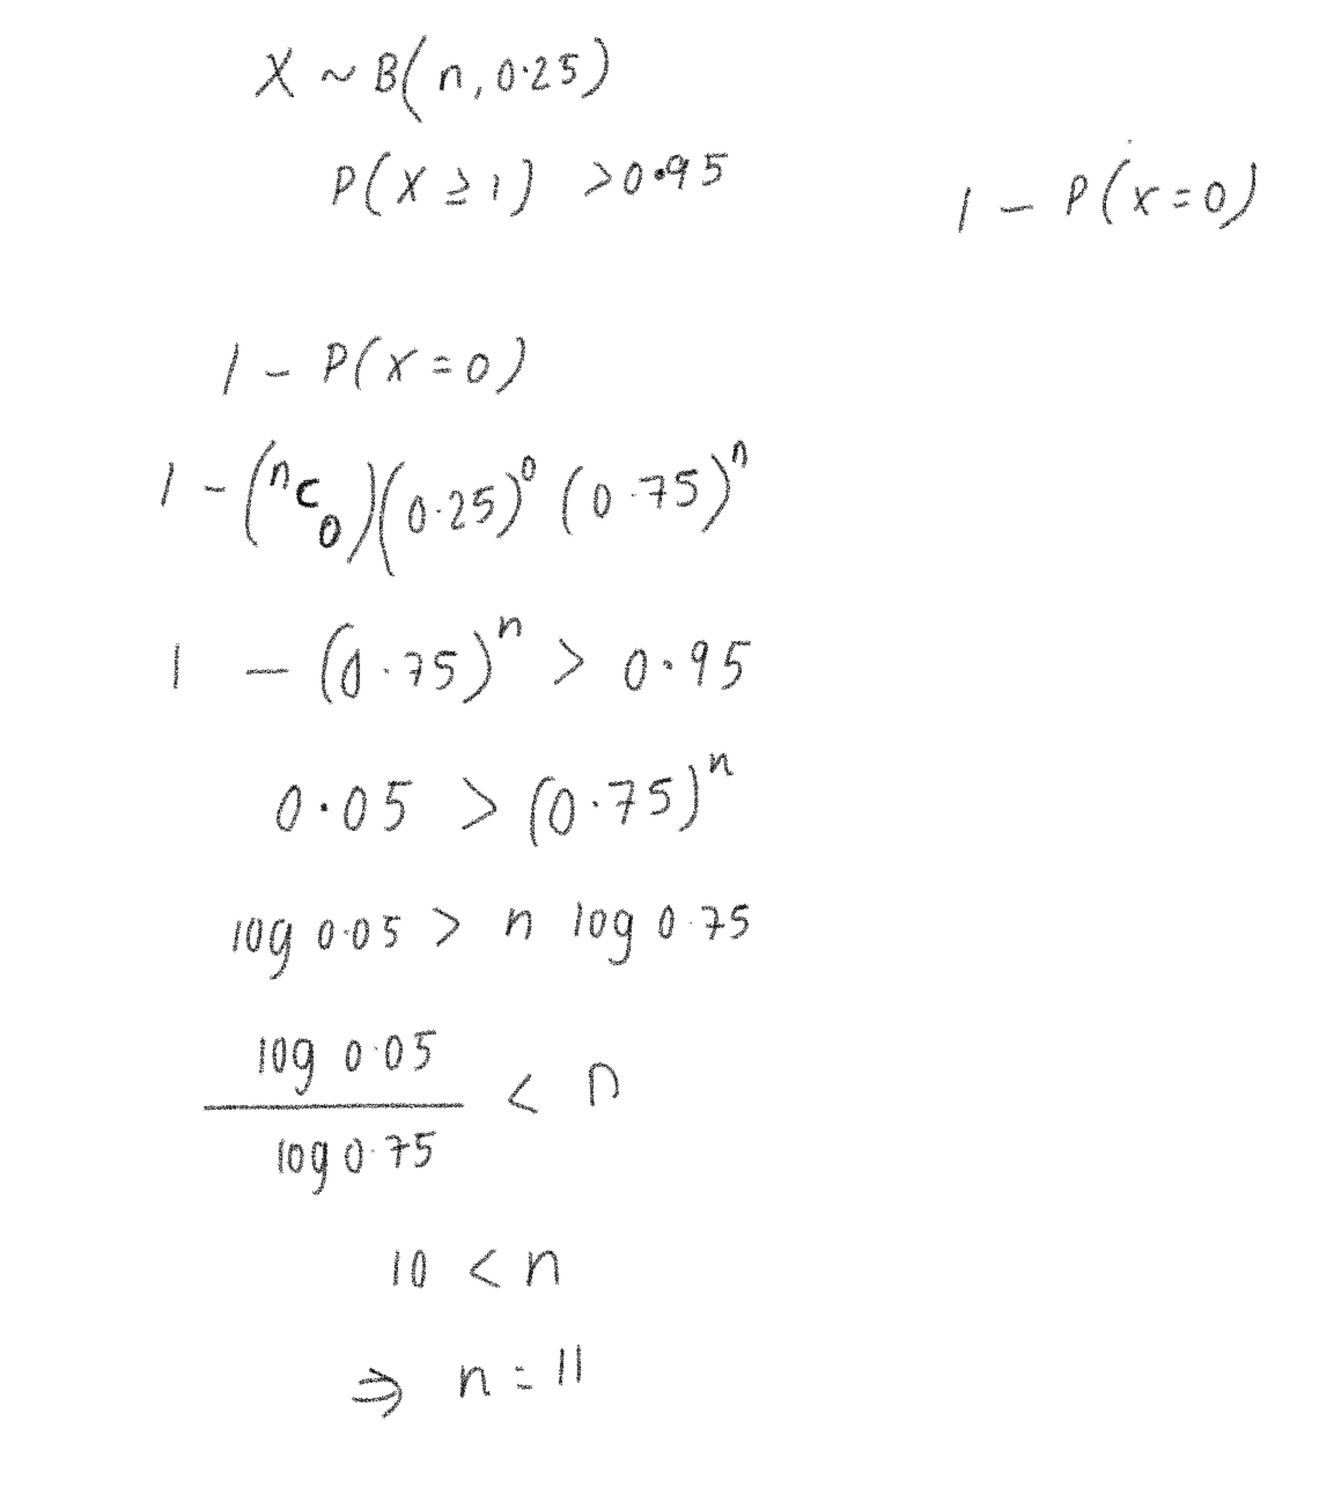 X ~ B(n, 0.25)
P(X ≥ 1) > 0.95
1 - P(x = 0)
1 - P(x = 0)
1 - (ⁿC₀)(0.25)⁰ (0.75)ⁿ
1 - (0.75)ⁿ > 0.95
0.05 > (0.75)ⁿ
log 0.05 > n log 0.75
log 0.05
< n
log 0.75
10 < n
⇒ n = 11